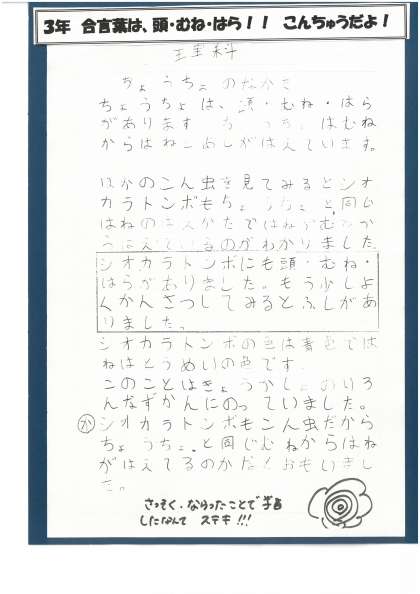 3年 合言葉は、頭・むね・はら!! こんちゅうだよ!
理科
ちょうちょのなかま
ちょうちょは、頭・むね・はら
があります ちょうちょはむね
からはねとあしがはえています。
ほかのこん虫を見てみるとシオ
カラトンボもちょうちょと同じ
はねの
はえているのがわかりました
シオカラトンボにも頭・むね・
はらがありました。もう少しよ
くかんさつしてみるとふしがあ
りました。
シオカラトンボの色は青色では
ねはとうめいの色です。
このことはきょうかしょのいろ
んなずかんにのっていました。
か シオカラトンボもこん虫だから
ちょうちょと同じむねからはね
がはえてるのかだとおもいまし
た。
さっそく、ならったことで学習
したなんて ステキ!!!